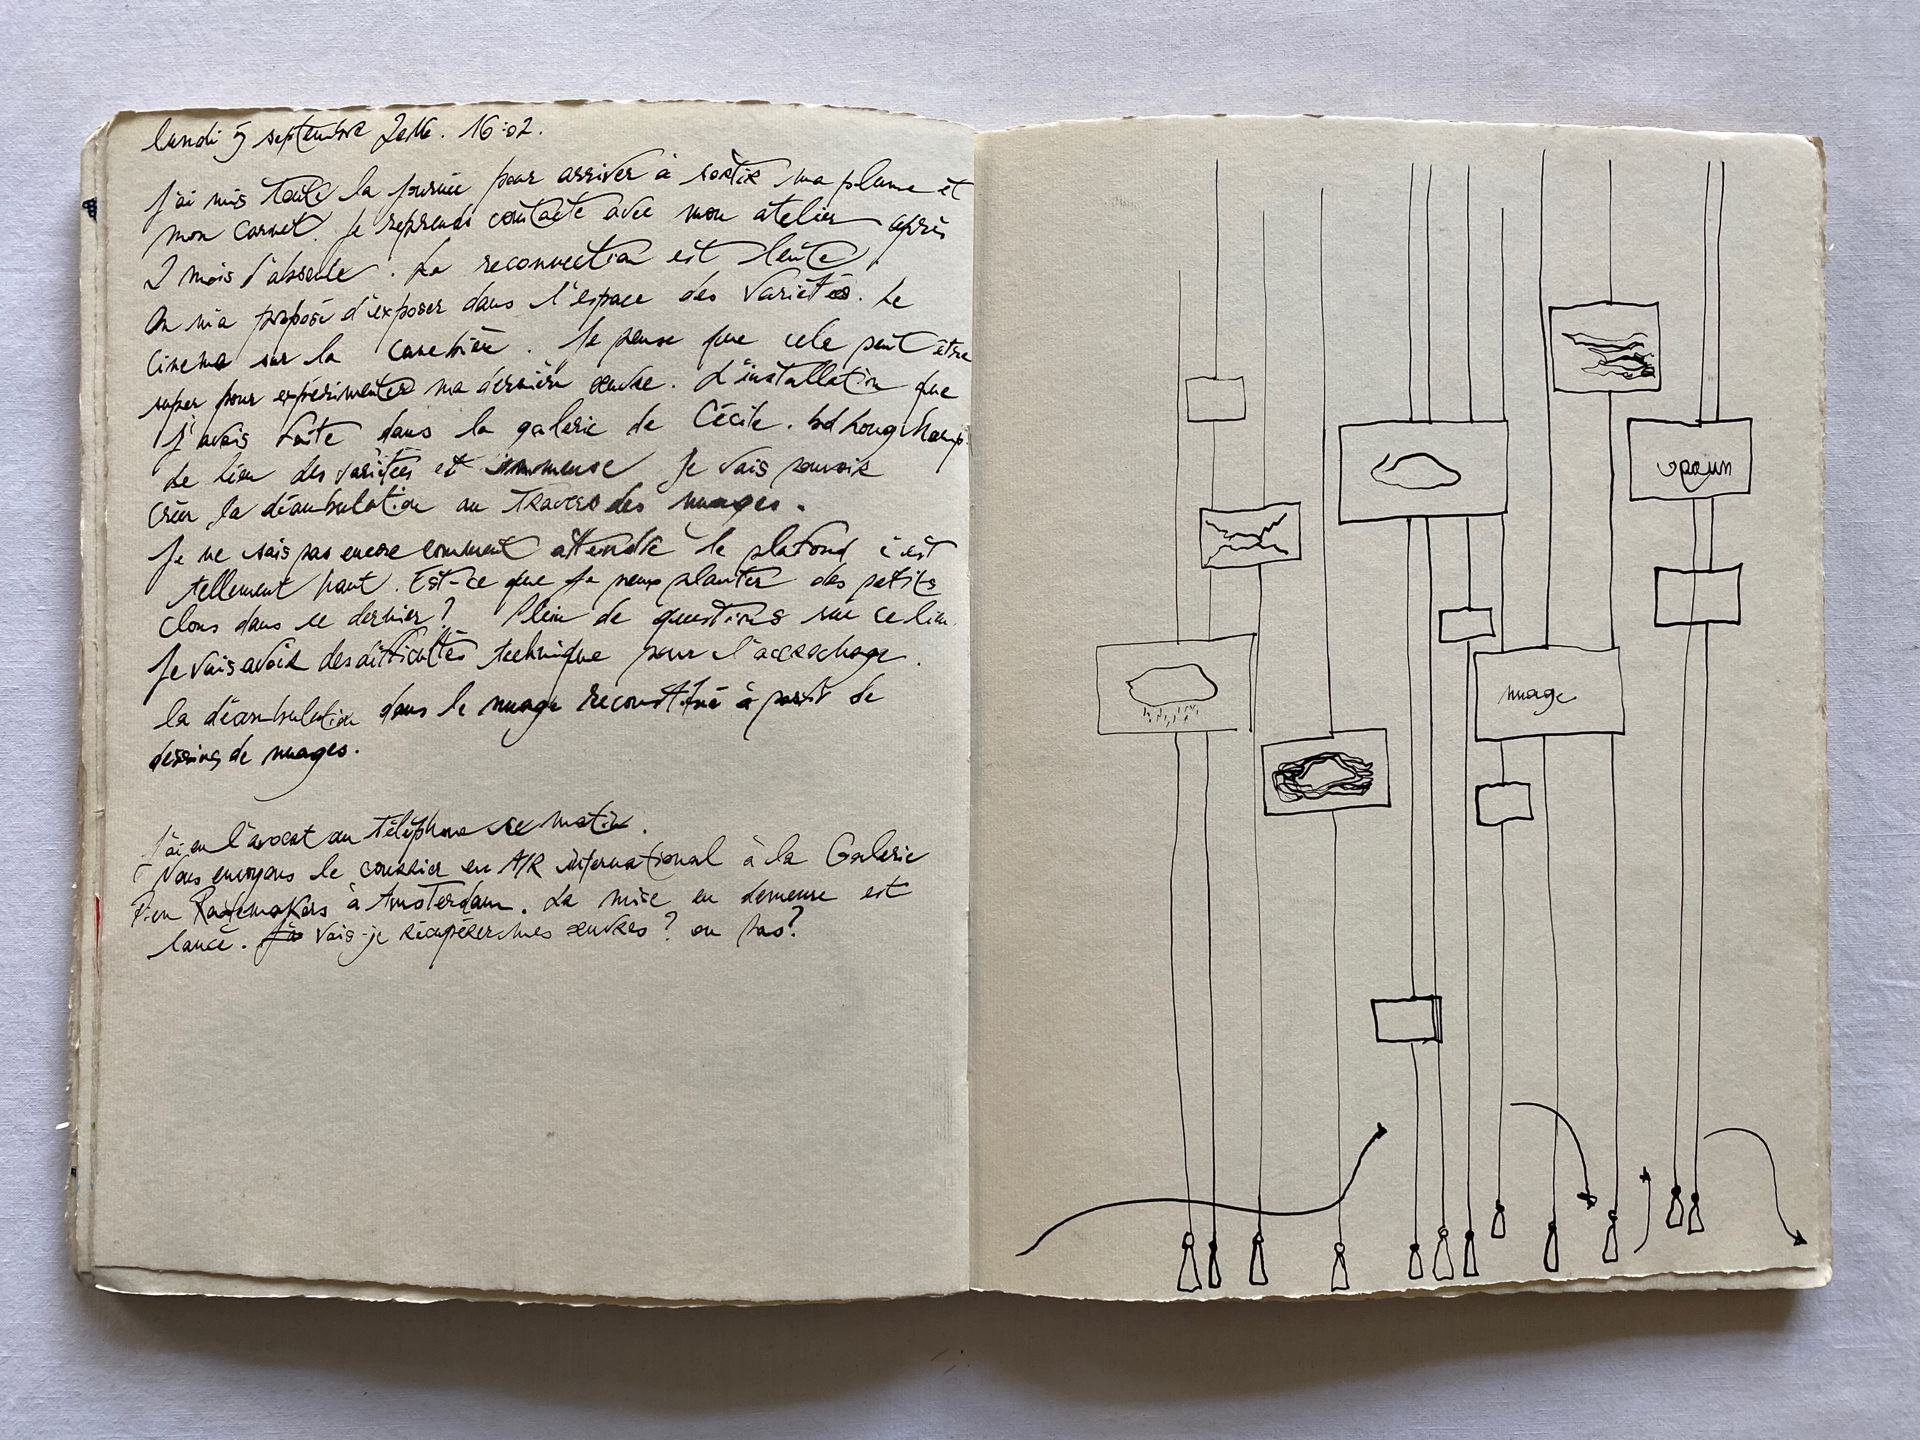 lundi 5 septembre 2016. 16:02.
J'ai mis toute la journée pour arriver à sortir ma plume et
mon carnet. Je reprends contacte avec mon atelier après
2 mois d'absence. La reconnection est lente.
On m'a proposé d'exposer dans l'espace des Variétés. Le
cinema sur la canebière. Je pense que cela peut être
super pour expérimenter ma dernière œuvre. L'installation que
j'avais faite dans la galerie de Cécile. bd Longchamp.
Le lieu des variétées est immense je vais pouvoir
créer la déambulation au travers des nuages.
Je ne sais pas encore comment atteindre le plafond c'est
tellement haut. Est-ce que je peux planter des petits
clous dans ce dernier? Plein de questions sur ce lieu.
Je vais avoir des difficultés technique pour l'accrochage.
la déambulation dans le nuage reconstitué à partir de
dessins de nuages.
J'ai eu l'avocat au téléphone ce matin.
Nous envoyons le courrier en A/R international à la Galerie
Rademakers à Amsterdam. La mise en demeure est
lancé. Vais-je récupérer mes œuvres? ou pas?
nuage